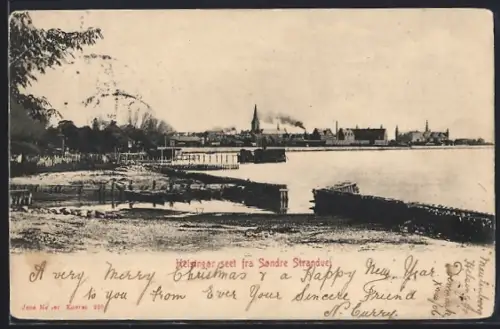 Helsingør seet fra Søndre Strandvej
A very Merry Christmas & a Happy New Year
to you from Ever Your Sincere Friend
N. Curry.